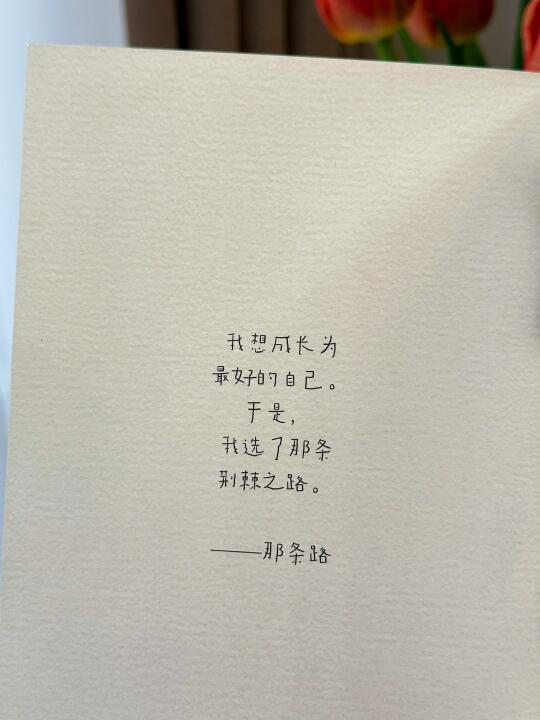 我想成长为
最好的自己。
于是，
我选了那条
荆棘之路。
——那条路